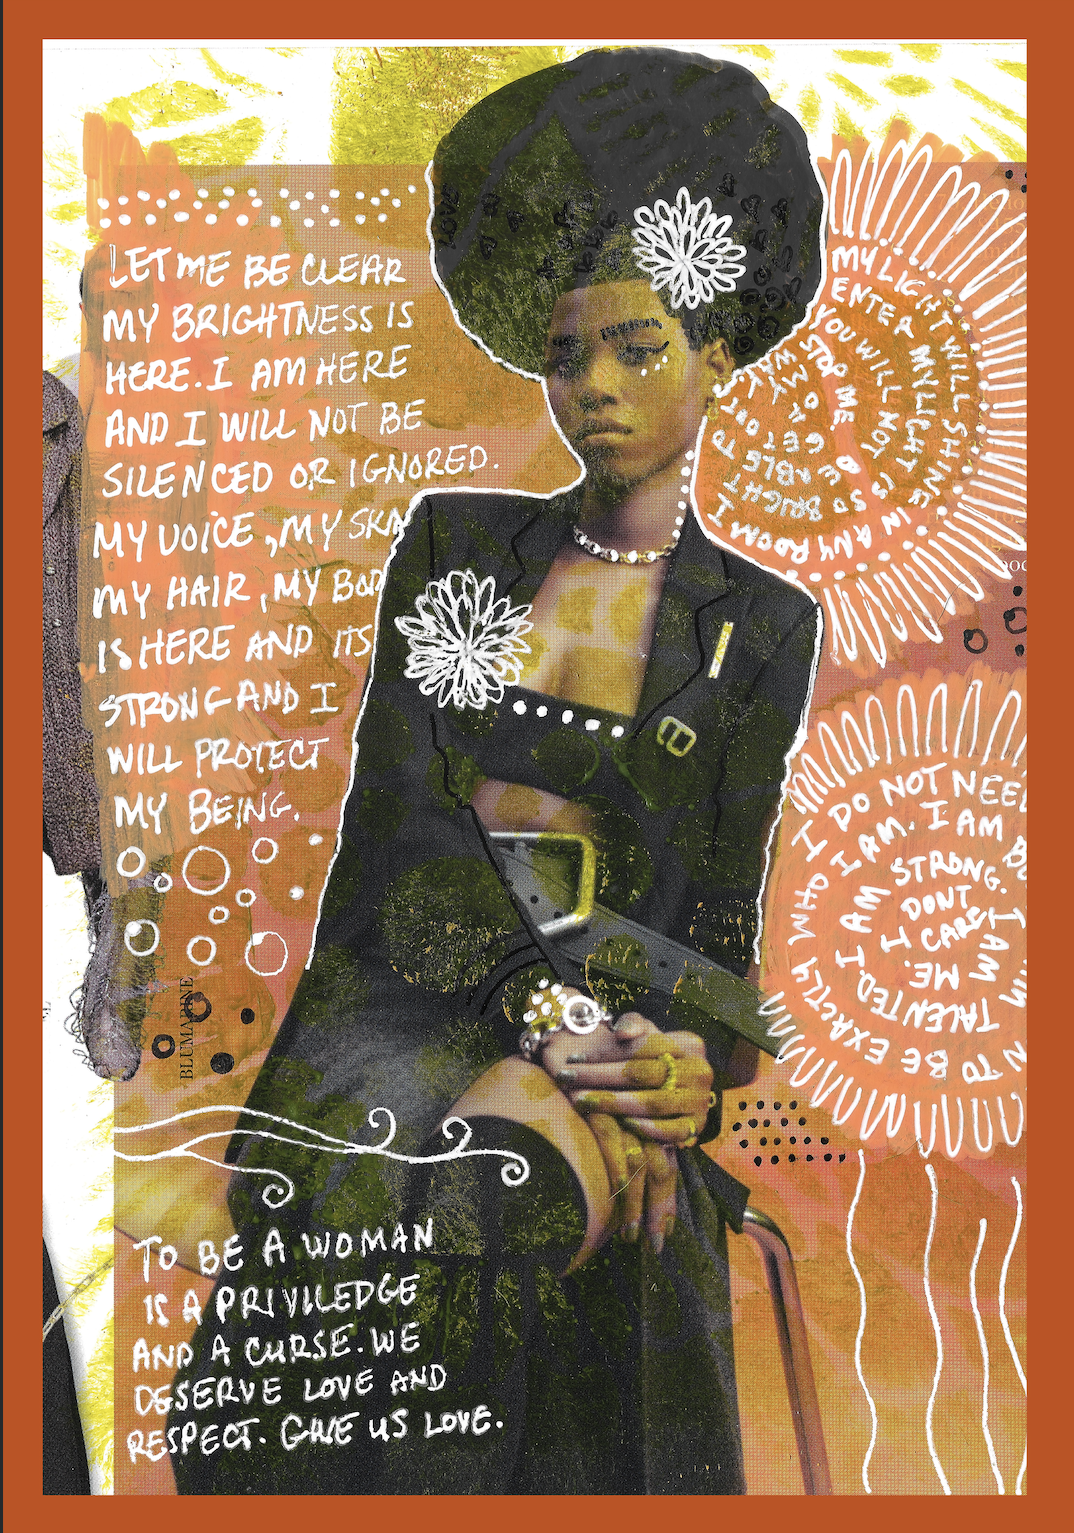 LET ME BE CLEAR
MY BRIGHTNESS IS
HERE. I AM HERE
AND I WILL NOT BE
SILENCED OR IGNORED.
MY VOICE, MY
MY HAIR, MY
IS HERE AND ITS
STRONG AND I
WILL PROTECT
MY BEING.
LOVE
MY LIGHT WILL SHINE IN ANY ROOM I
ENTER MY LIGHT IS SO BRIGHT
YOU WILL NOT BE ABLE TO
STOP ME GET OUT
OF MY WAY.
I DO NOT NEED
TO BE EXACTLY WHO
I AM. I AM
I AM TALENTED. I AM
STRONG. I
DONT
CARE
ME.
BLUMARINE
TO BE A WOMAN
IS A PRIVILEDGE
AND A CURSE. WE
DESERVE LOVE AND
RESPECT. GIVE US LOVE.